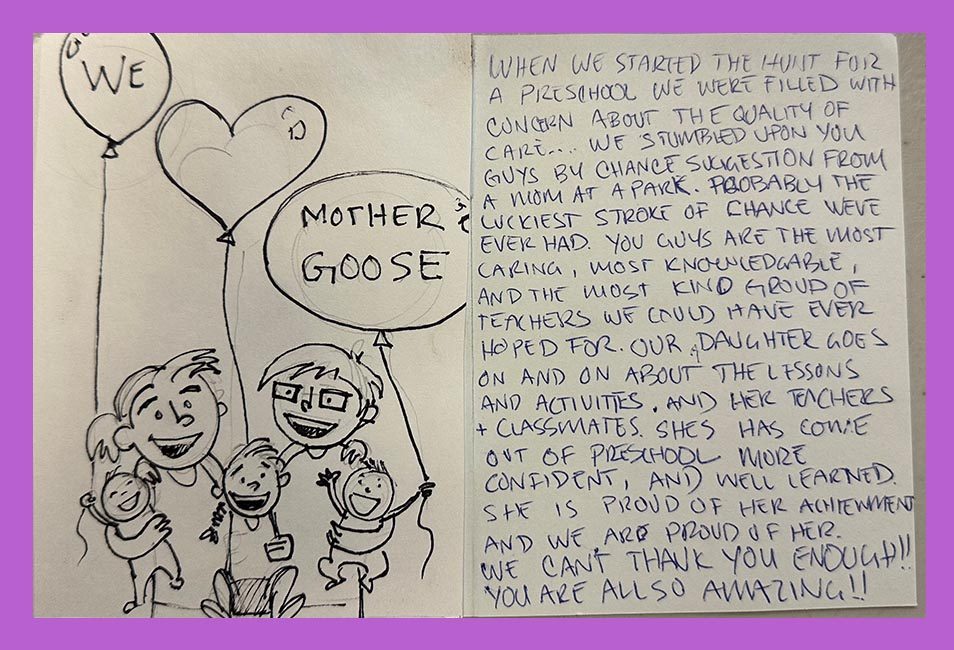 WE
MOTHER
GOOSE
WHEN WE STARTED THE HUNT FOR
A PRESCHOOL WE WERE FILLED WITH
CONCERN ABOUT THE QUALITY OF
CARE.... WE STUMBLED UPON YOU
GUYS BY CHANCE SUGGESTION FROM
A MOM AT A PARK. PROBABLY THE
LUCKIEST STROKE OF CHANCE WEVE
EVER HAD. YOU GUYS ARE THE MOST
CARING, MOST KNOWLEDGABLE,
AND THE MOST KIND GROUP OF
TEACHERS WE COULD HAVE EVER
HOPED FOR. OUR DAUGHTER GOES
ON AND ON ABOUT THE LESSONS
AND ACTIVITIES, AND HER TEACHERS
+ CLASSMATES. SHES HAS COME
OUT OF PRESCHOOL MORE
CONFIDENT, AND WELL LEARNED.
SHE IS PROUD OF HER ACHIEVMENT
AND WE ARE PROUD OF HER.
WE CAN'T THANK YOU ENOUGH!!
YOU ARE ALL SO AMAZING!!